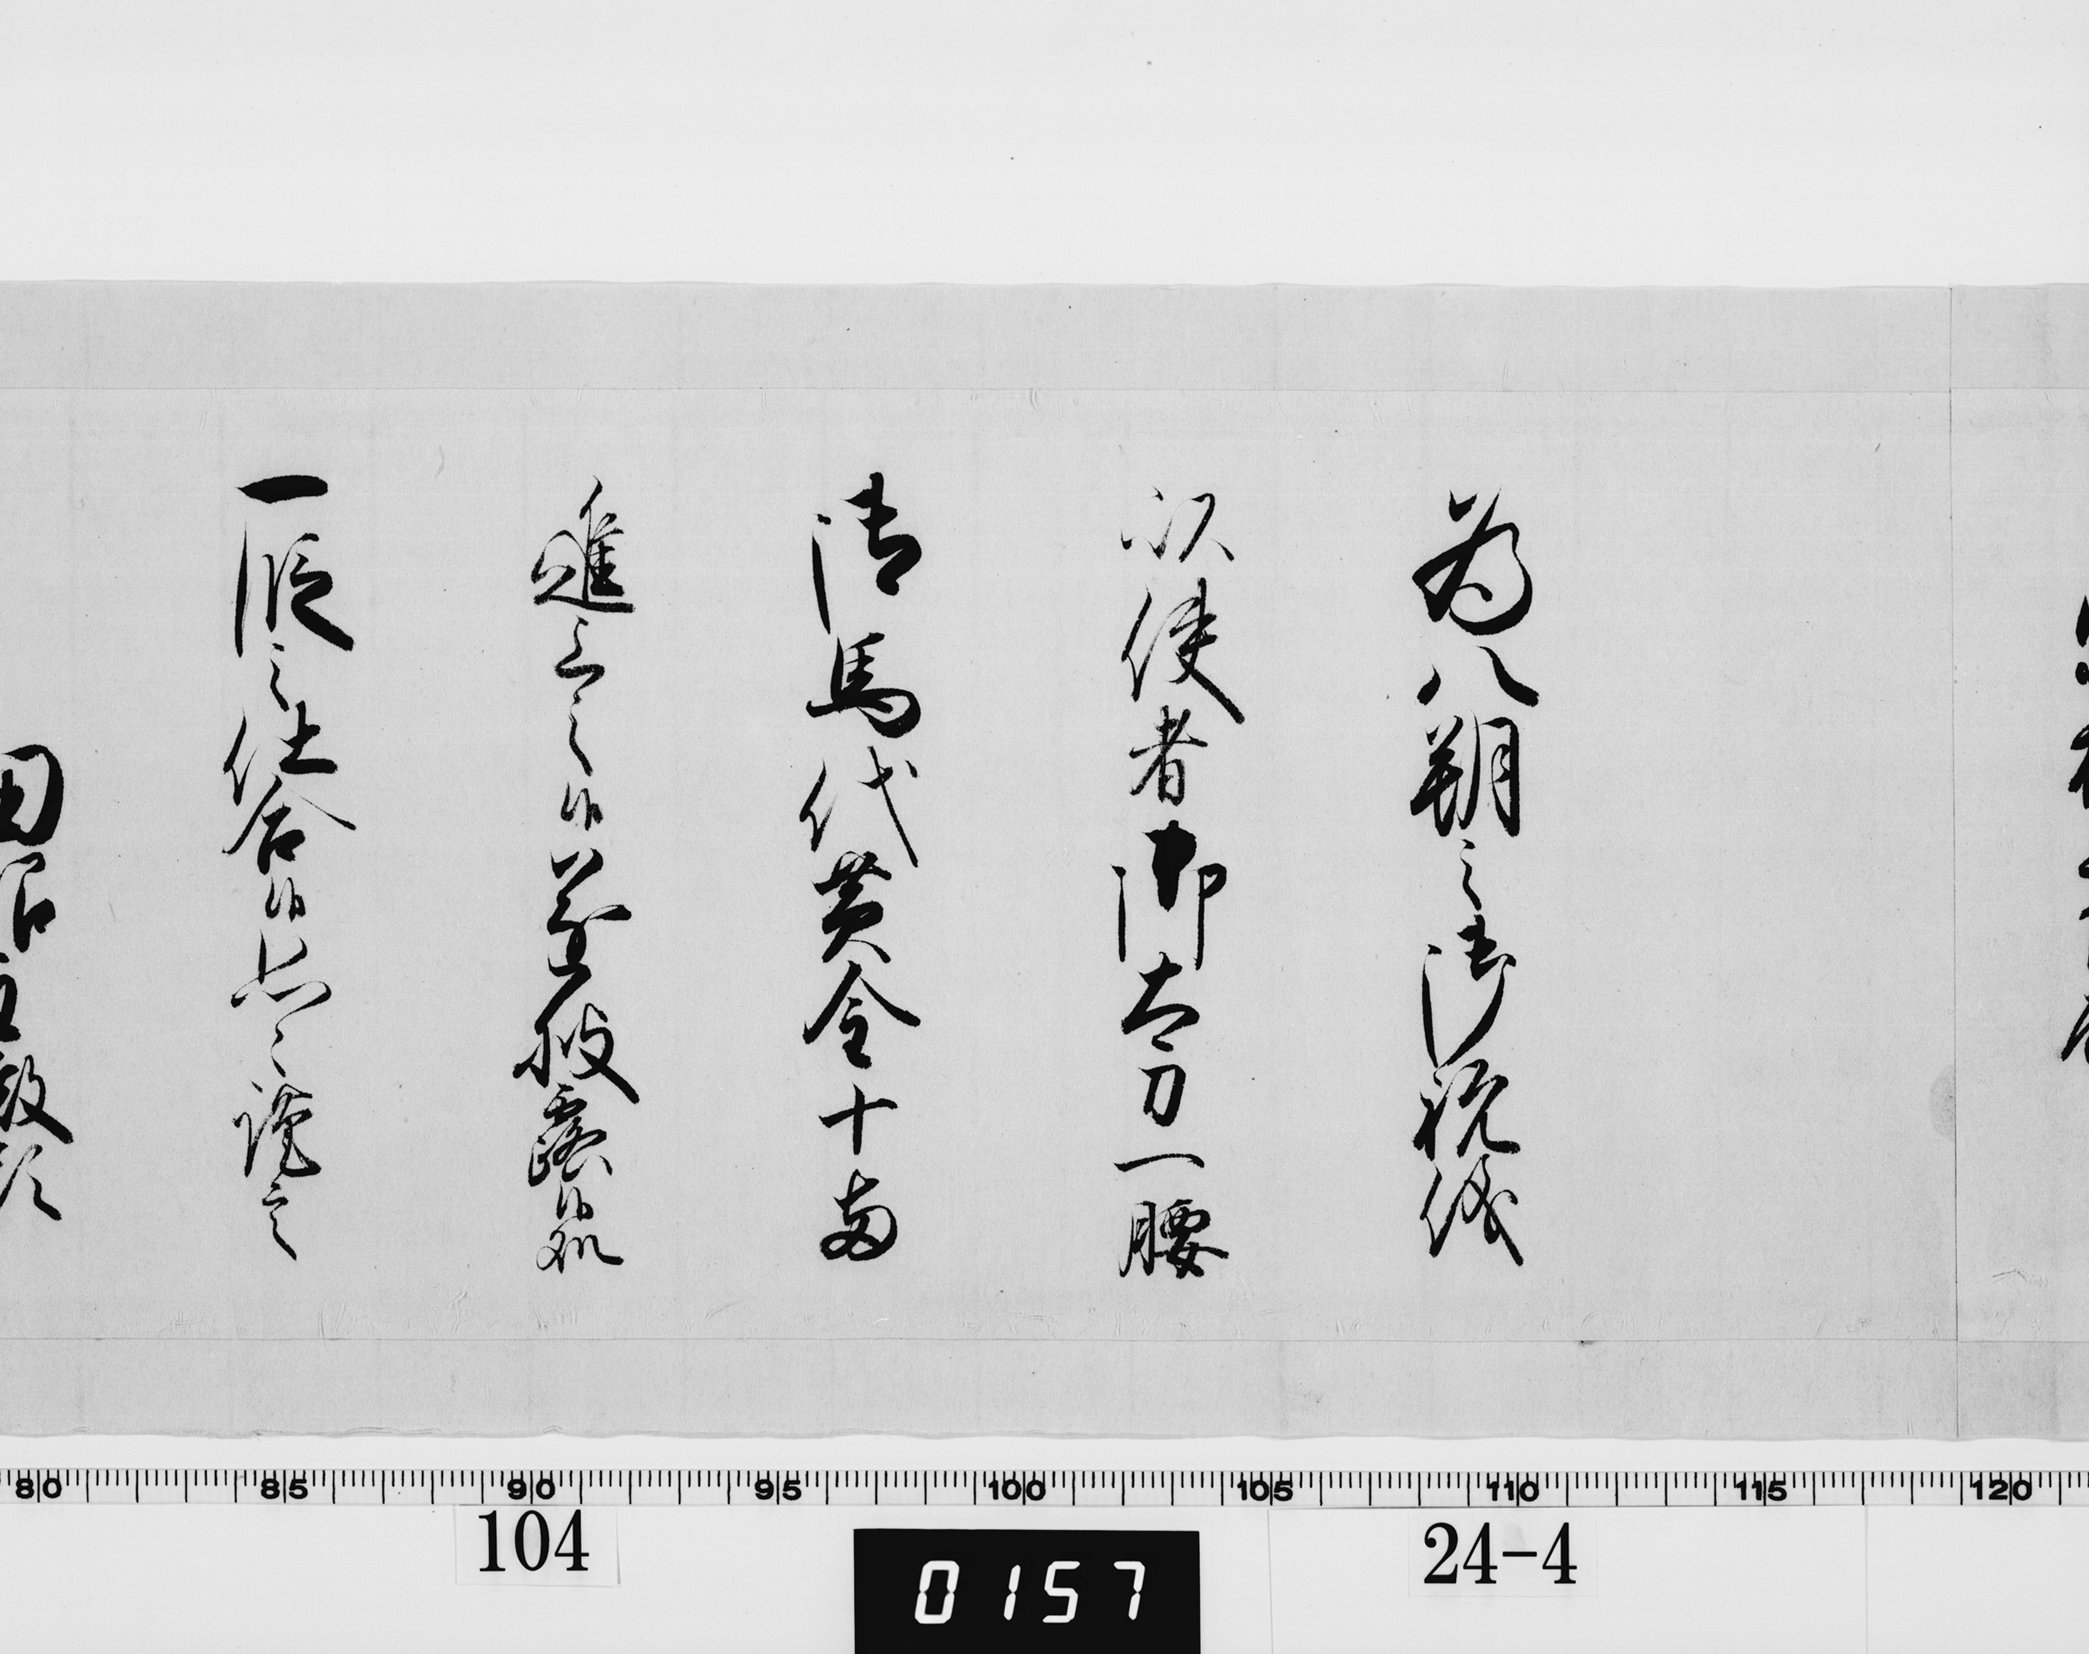 為八朔之御祝儀
以使者御太刀一腰
御馬代黄金十両
進上之候遂披露候処
一段之仕合候恐々謹言
80 85 90 95 100 105 110 115 120
104
0157
24-4